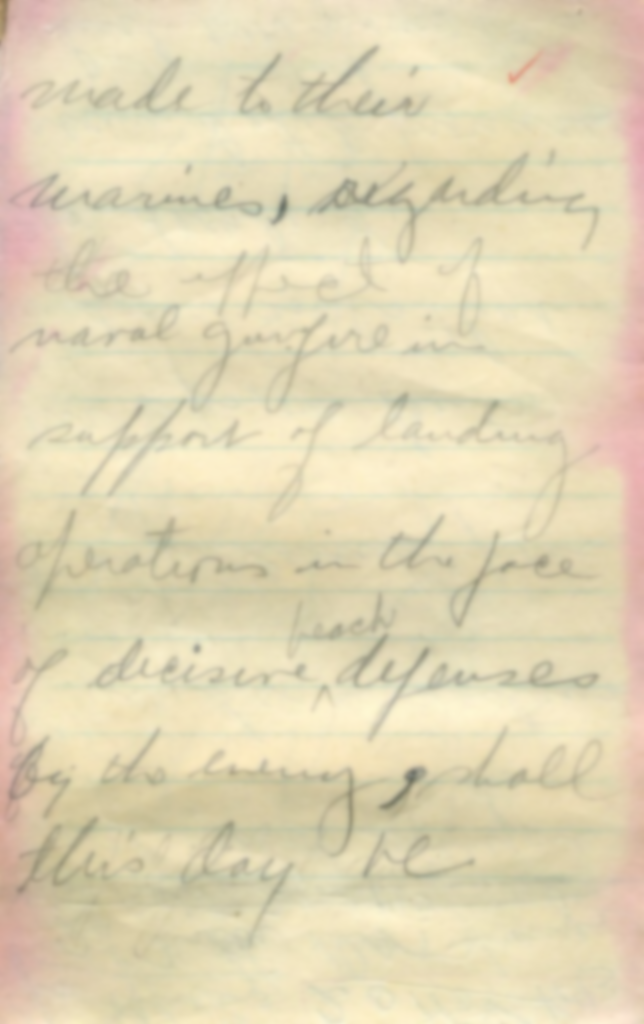 made to their
marines, regarding
the effect of
naval gunfire in
support of landing
operations in the face
beach
of decisive defenses
by the enemy, shall
this day be